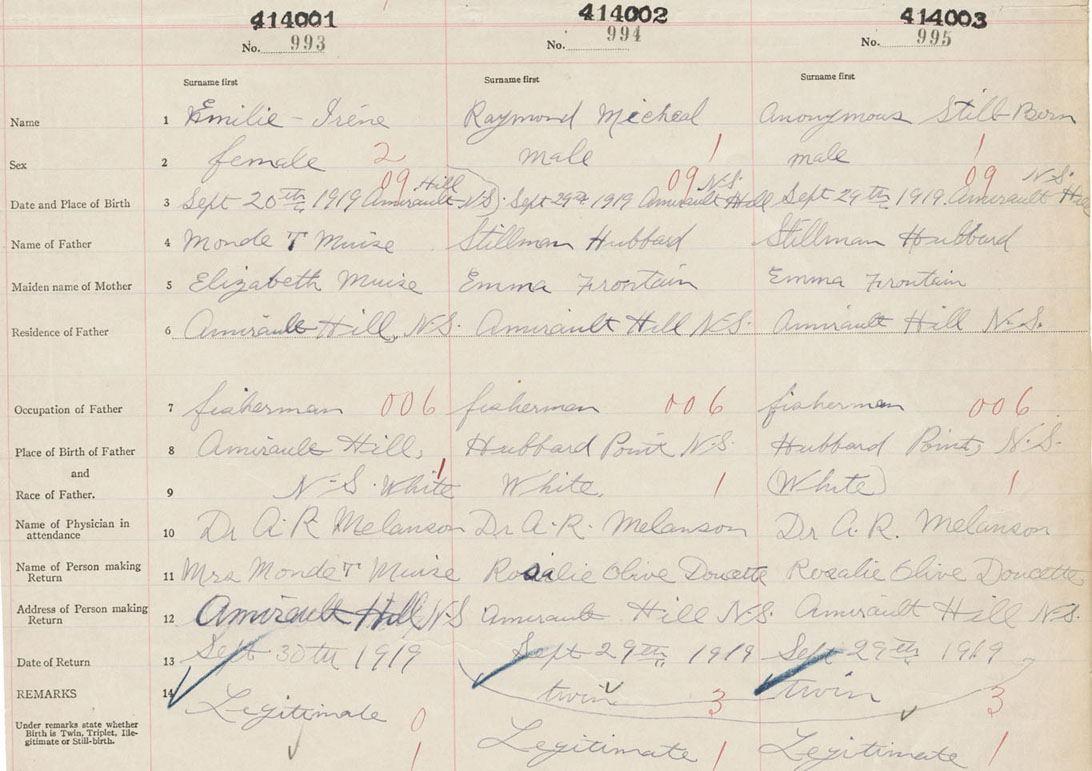 414001 414002 414003
No. 993 No. 994 No. 995
Surname first Surname first Surname first
Name 1 Emilie - Iréne Raymond Micheal Anonymous Still Born
Sex 2 female 2 male 1 male 1
09 Hill 09 N.S. 09 N.S.
Date and Place of Birth 3 Sept 20th 1919 Amirault N.S. Sept 29th 1919 Amirault Hill Sept 29th 1919. Amirault Hill
Name of Father 4 Monde T Muise Stillman Hubbard Stillman Hubbard
Maiden name of Mother 5 Elizabeth Muise Emma Frontain Emma Frontain
Residence of Father 6 Amirault Hill, N.S. Amirault Hill N.S. Amirault Hill N.S.
Occupation of Father 7 fisherman 006 fisherman 006 fisherman 006
Place of Birth of Father 8 Amirault Hill, Hubbard Point N.S. Hubbard Point, N.S.
and
Race of Father. 9 N-S. White 1 White. 1 (White) 1
Name of Physician in
attendance 10 Dr A. R Melanson Dr A-R. Melanson Dr A. R. Melanson
Name of Person making
Return 11 Mrs Monde T Muise Rosalie Olive Doucette Rosalie Olive Doucette
Address of Person making
Return 12 Amirault Hill N.S Amirault Hill N.S. Amirault Hill N.S.
Date of Return 13 Sept 30th 1919 Sept 29th 1919 Sept 29th 1919
REMARKS 14 Legitimate 0 twin 3 twin 3
Under remarks state whether
Birth is Twin, Triplet, Ille-
gitimate or Still-birth.
1 Legitimate 1 Legitimate 1